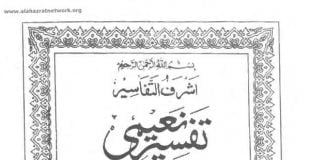 www.alahazratnetwork.org
بسم الله الرحمن الرحيم
اشرف التفاسیر
تفسیر نعیمی